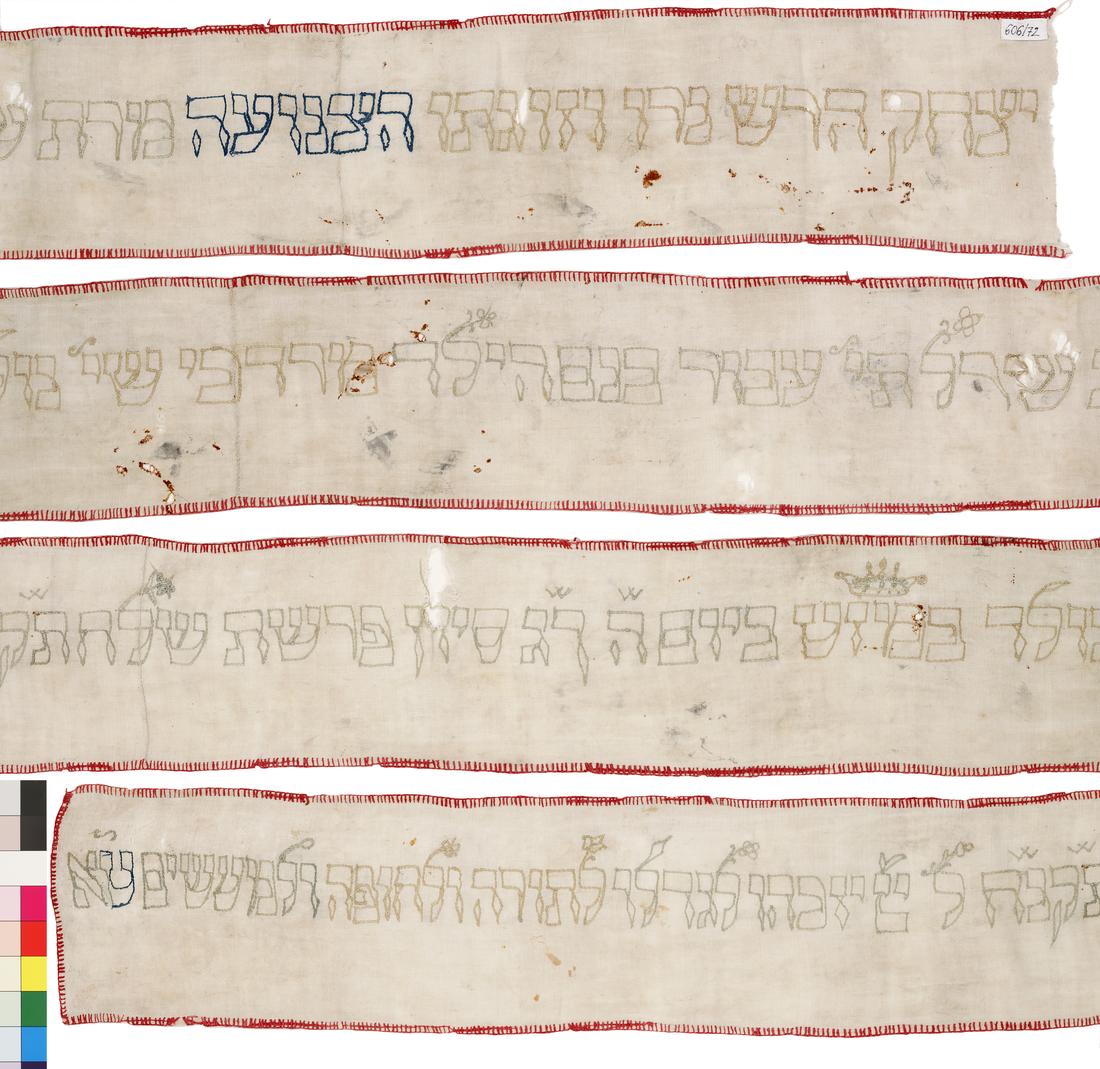 יצחק הרש נרו וזוגתו הצנועה מרת
שרל תי' עבור בנם הילד מרדכי שי' נולד
במז"ט ביום ה כג סיון פרשת שלח
תקנח ל יזכהו לגדלו לתורה ולחופה ולמעשים ט"א